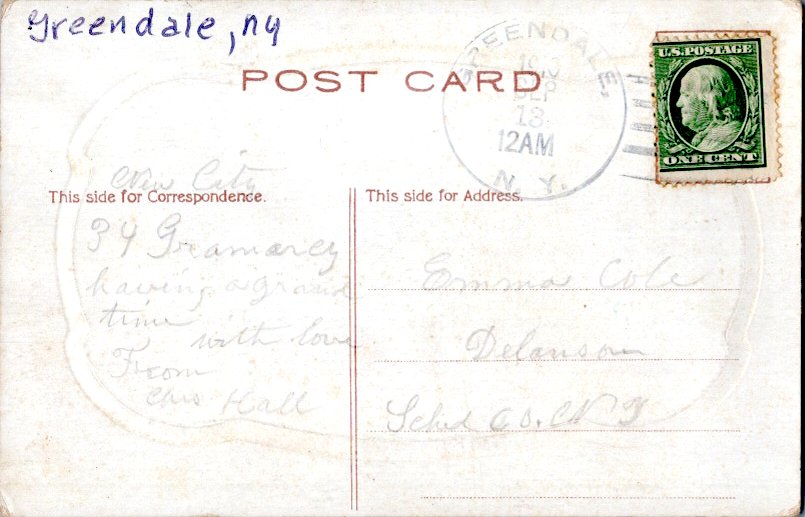 Greendale, ny
POST CARD
GREENDALE,
SEP
13
12AM
N. Y.
U.S. POSTAGE
ONE CENT
This side for Correspondence.
This side for Address.
City
34 Gramarcy
having a grand
time
with love
From
Hall
Emma Cole
Delanson
Sched Co. N Y